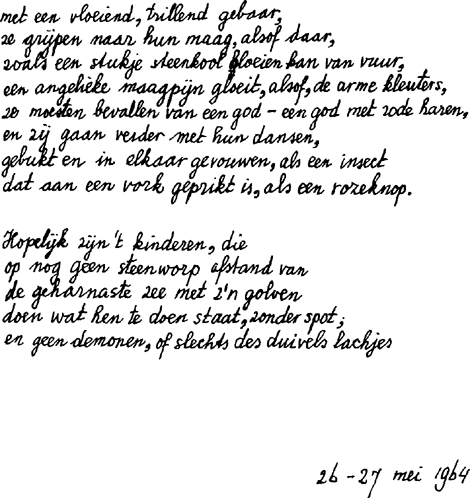 met een vloeiend, trillend gebaar,
ze grijpen naar hun maag, alsof daar,
zoals een stukje steenkool gloeien kan van vuur,
een angelieke maagpijn gloeit, alsof, de arme kleuters,
ze moesten bevallen van een god – een god met rode haren,
en zij gaan verder met hun dansen,
gebukt en in elkaar gevouwen, als een insect
dat aan een vork geprikt is, als een rozeknop.
Hopelijk zijn 't kinderen, die
op nog geen steenworp afstand van
de geharnaste zee met z'n golven
doen wat hen te doen staat, zonder spot;
en geen demonen, of slechts des duivels lachjes
26 – 27 mei 1964